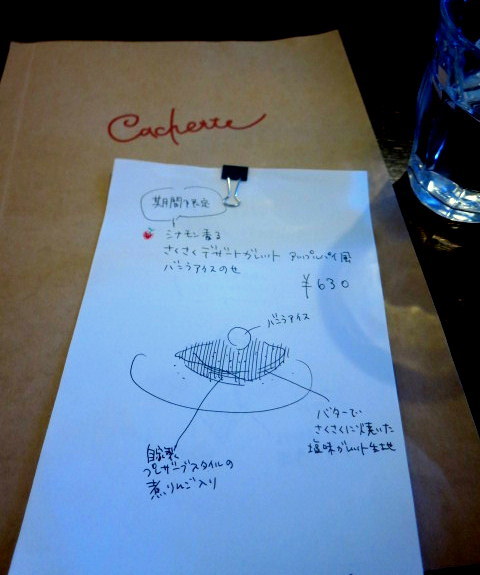 Cachette
期間限定
シナモン香る
さくさくデザートガレット アップルパイ風
バニラアイスのせ
¥630
バニラアイス
バターで
さくさくに焼いた
塩味ガレット生地
自家製
プレザーブスタイルの
煮りんご入り